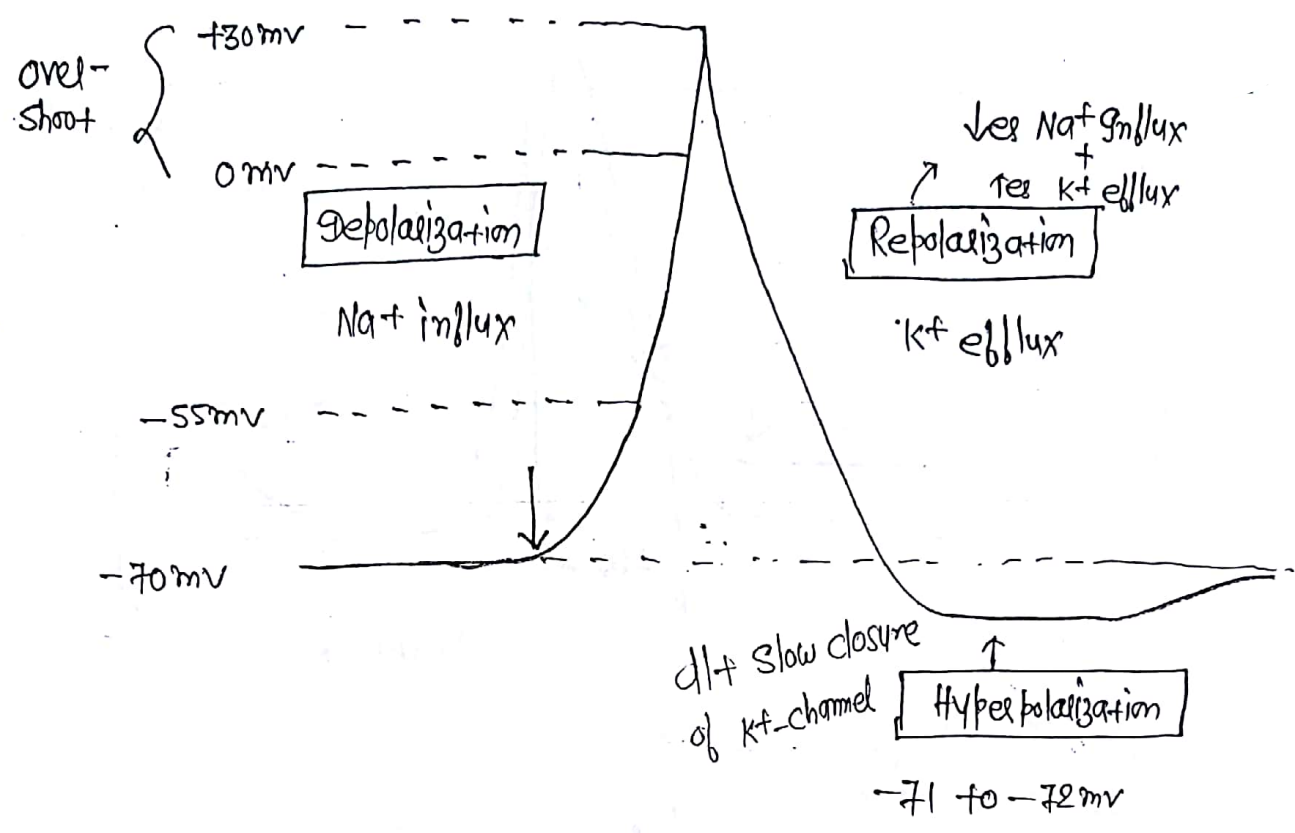 +30mv
over-
shoot
0mv
Depolarization
Na+ influx
-55mv
-70mv
↓es Na+ Influx
+
↑es K+ efflux
Repolarization
K+ efflux
dlt slow closure
of K+-channel
Hyperpolarization
-71 to -72mv